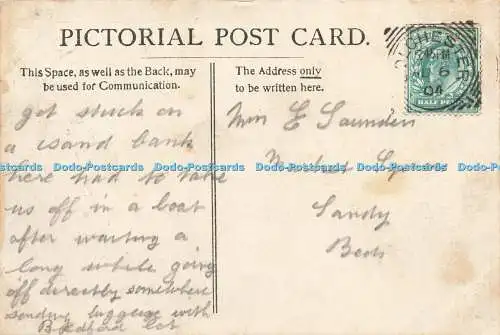 PICTORIAL POST CARD.
This Space, as well as the Back, may
be used for Communication.
The Address only
to be written here.
COLCHESTER
6
04
HALF PE
got stuck on
a sand bank
here had to take
us off in a boat
after waiting a
long while going
off directly somewhere
sending luggage with
Bedford
E Saunders
Sandy
Beds
Dodo-Postcards Dodo-Postcards Dodo-Postcards Dodo-Postcards Dodo-Postcards
Dodo-Postcards Dodo-Postcards Dodo-Postcards Dodo-Postcards Dodo-Postcards